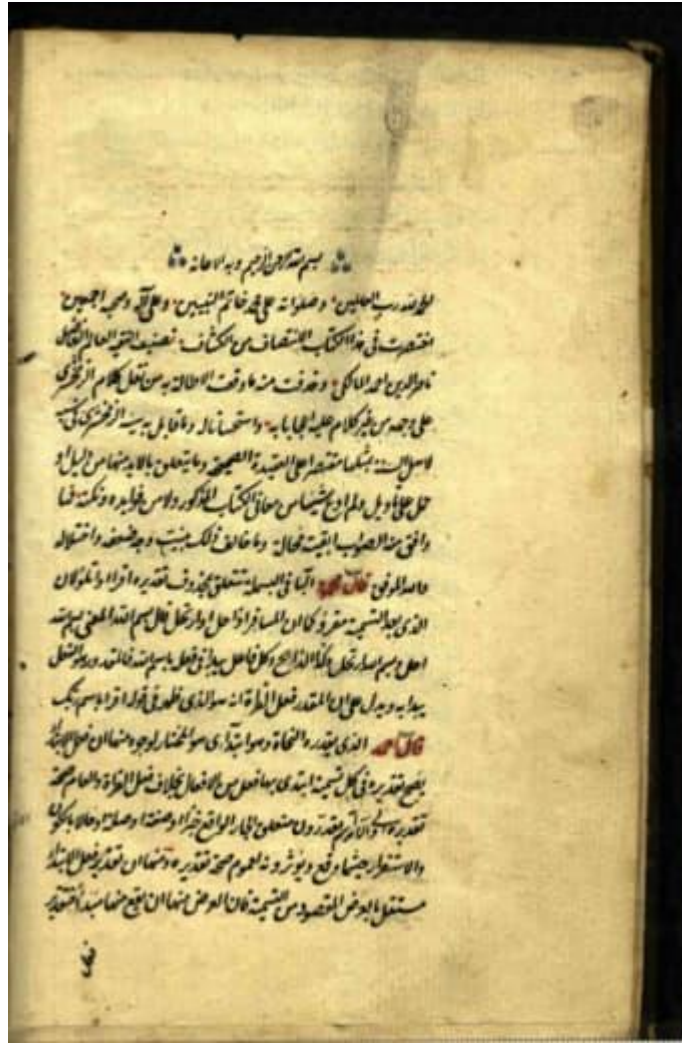 بسم الله الرحمن الرحيم وبه الاعانة
الحمد لله رب العالمين وصلواته على محمد خاتم النبيين وعلى آله وصحبه اجمعين
اختصرت في هذا الكتاب الانتصاف من الكشاف تصنيف الفقيه العالم
ناصر الدين احمد المالكي وحذفت منه ما وقعت الاطالة به من نقل كلام الزمخشري
على وجهه من غير كلام عليه الحابا به واستحسانا له وما قابل به سبه الزمخشري
لاهل السنة بمثلها مقتصرا على العقيدة الصحيحة وما يتعلق بالابد منها من دليل او
حمل على تاويل ولم ادع شيئا من معاني الكتاب المذكور ولا من فوايده ونكته فما
وافق منه الصواب ابقيت بحاله وما خالف ذلك بينت وجه ضعفه واختلاله
والله الموفق قال محمود الباء في البسملة تتعلق بمحذوف تقديره اقرا او اتلو كان
الذي بعد التسمية مقروء كما ان المسافر اذا حل او ارتحل قال بسم الله المعنى بسم الله
احل وبسم الله ارتحل وكذا الذابح وكل فاعل يبدا في فعله باسم الله فالمقدر هو الفعل
يبدا به ويدل على ان المقدر فعل القراة انه هو الذي ظهر في قوله اقرا باسم ربك
قال احمد الذي يقدره النحاة وهو ابتدائي هو المختار لوجوه منها ان فعل الابتداء
يصح تقديره في كل تسمية ابتدى بها فعل من الافعال بخلاف فعل القراة والعام صحة
تقديره اولى الا تراهم يقدرون متعلق الجار الواقع خبرا او صفة او صلة او حالا بالكون
والاستقرار حيثما وقع ويؤثرونه لعموم صحة تقديره ومنها ان تقدير فعل الابتداء
مستقل بالغرض المقصود من التسمية فان الغرض منها ان تقع منها مبدأ فتقدير